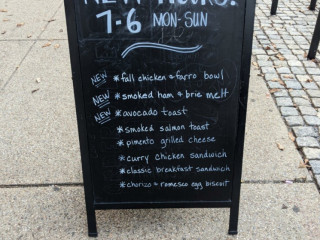 NEW HOURS!
7-6 MON-SUN
NEW *fall chicken + farro bowl
NEW *smoked ham + brie melt
NEW *avocado toast
*smoked salmon toast
*pimento grilled cheese
*curry chicken sandwich
*classic breakfast sandwich
*chorizo + romesco egg biscuit